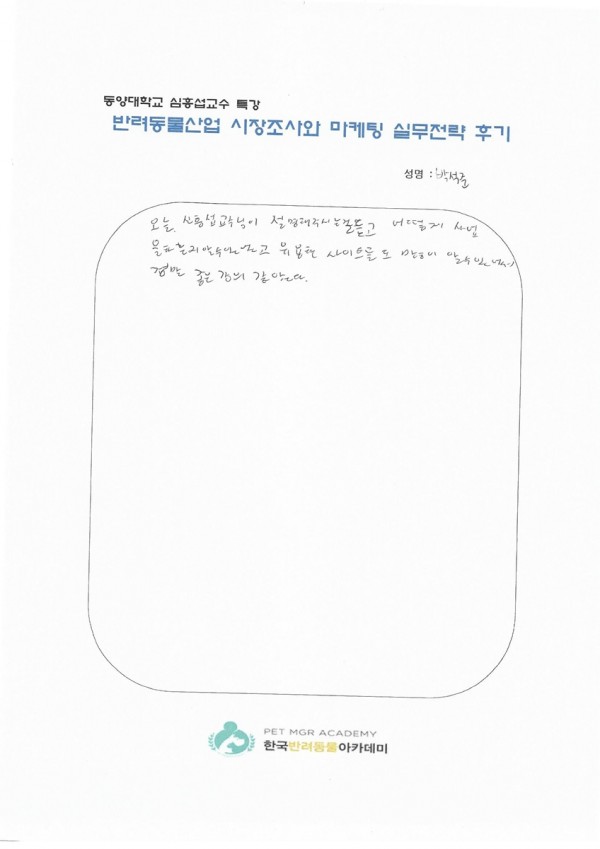 동양대학교 심홍섭교수 특강
반려동물산업 시장조사와 마케팅 실무전략 후기
성명 : 박석준
오늘 신홍섭교수님이 설명해주시는걸 듣고 어떻게 사업
알수 있었고 유용한 사이트들도 많이 알수있어서
정말 좋은 강의 같았다.
PET MGR ACADEMY
한국반려동물아카데미